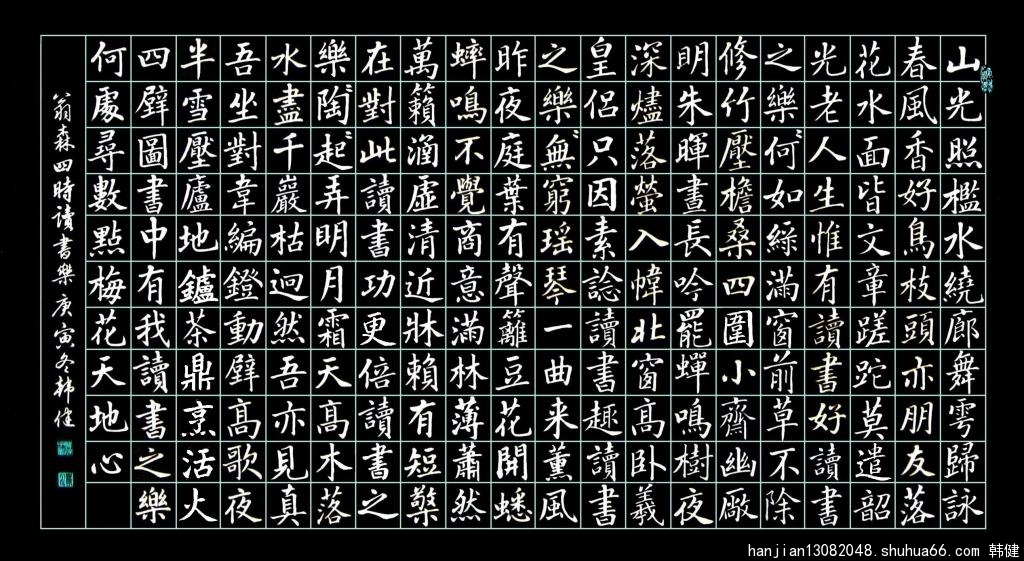 山光照檻水繞廊舞雩歸詠
春風香好鳥枝頭亦朋友落
花水面皆文章蹉跎莫遣韶
光老人生惟有讀書好讀書
之樂〻何如綠滿窗前草不除
修竹壓檐桑四圍小齋幽厰
明朱暉晝長吟罷蟬鳴樹夜
深燼落螢入幃北窗高卧羲
皇侣只因素諗讀書趣讀書
之樂〻無窮瑶琴一曲来薰風
昨夜庭葉有聲籬豆花開蟋
蟀鳴不覺商意滿林薄蕭然
萬籟涵虛清近牀賴有短檠
在對此讀書功更倍讀書之
樂陶〻起弄明月霜天高木落
水盡千巖枯迥然吾亦見真
吾坐對韋編鐙動壁高歌夜
半雪壓廬地鑪茶鼎烹活火
四壁圖書中有我讀書之樂
何處尋數點梅花天地心
翁森四時讀書樂庚寅冬韓健
hanjian13082048.shuhua66.com 韩健